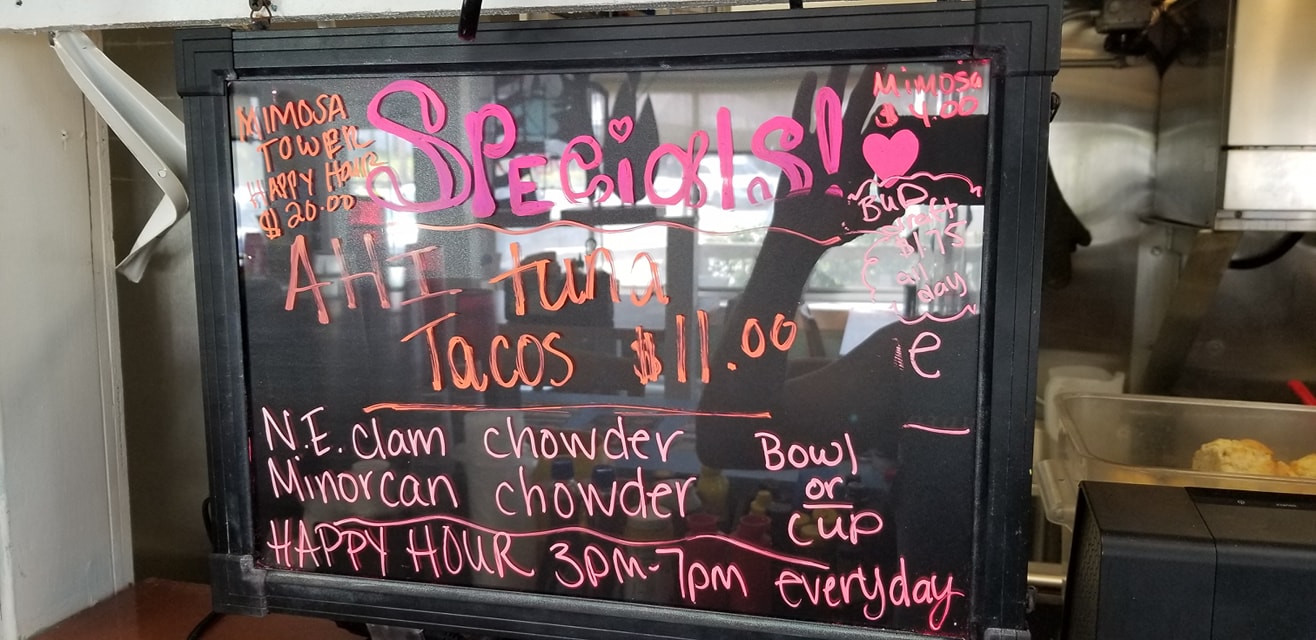 MIMOSA
TOWER
HAPPY HOUR
$20.00
SPEcials!
Mimosa
$4.00
BUD
draft
$1.75
all
day
e
AHI tuna
Tacos $11.00
N.E. clam chowder
Minorcan chowder
Bowl
or
cup
HAPPY HOUR 3pm-7pm everyday